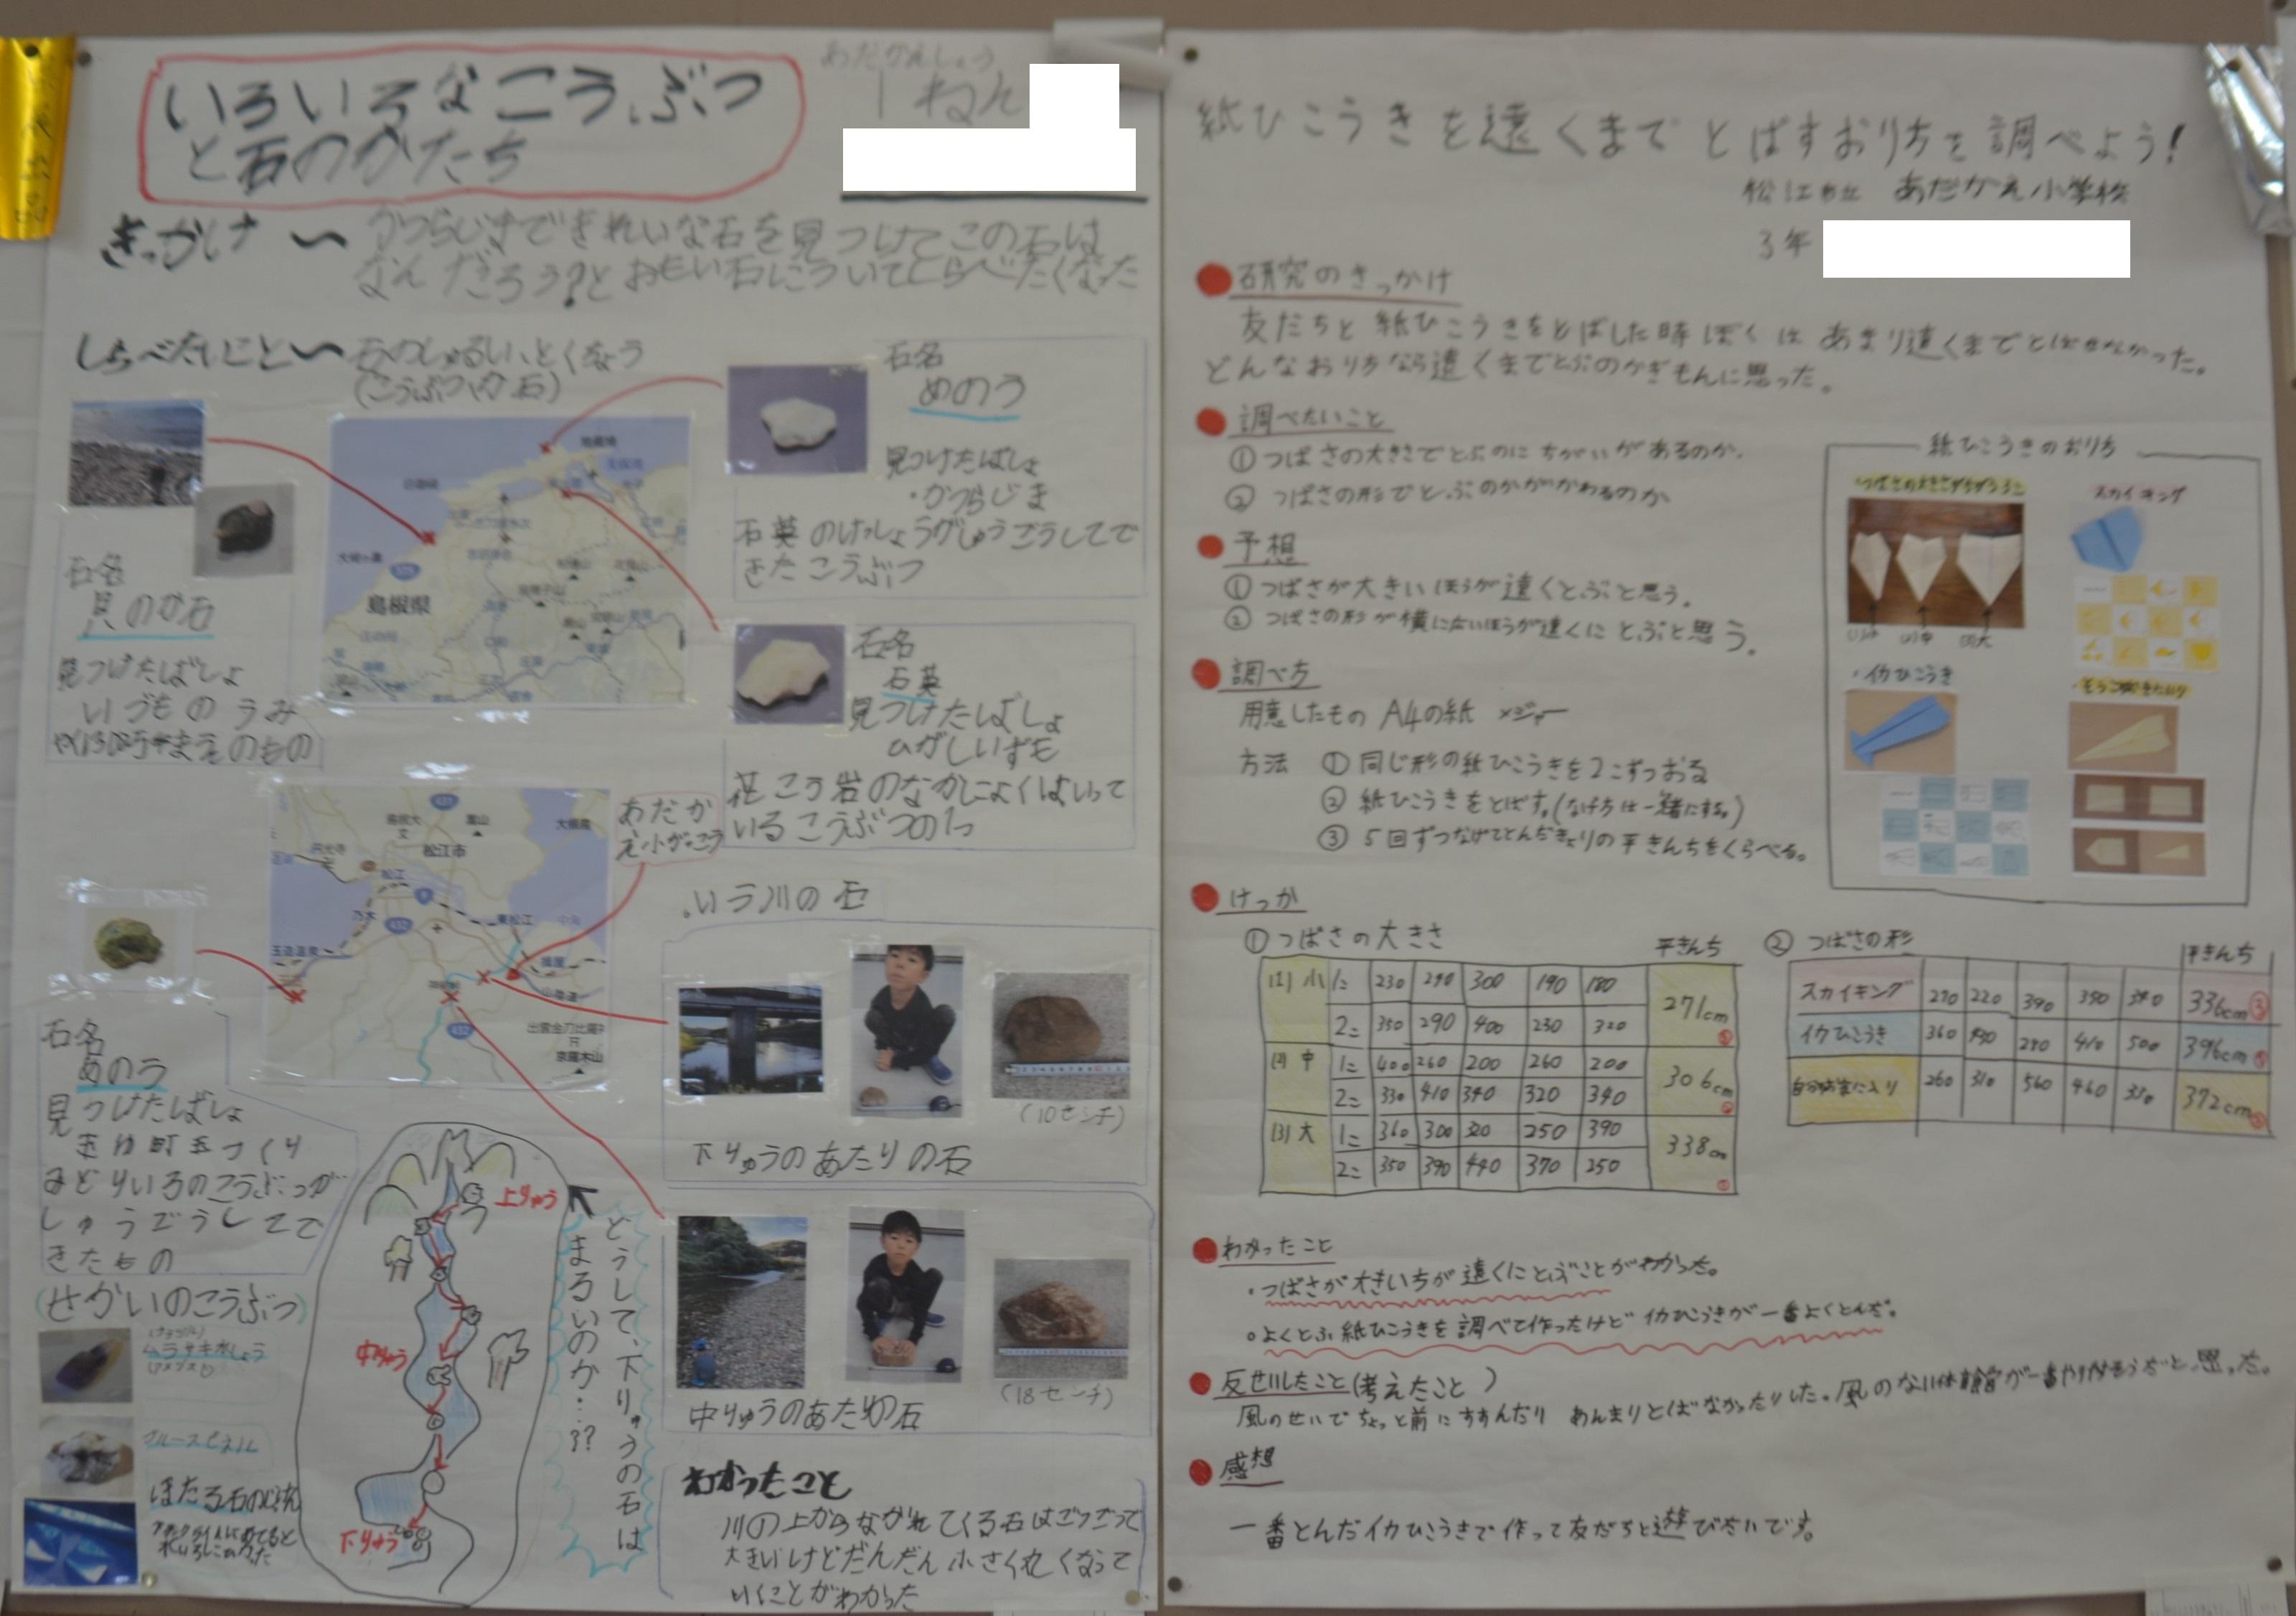 いろいろなこうぶつ
と石のかたち
あだかえしょう
1ねん
きっかけ〜
かつらじまできれいな石を見つけてこの石は
なんだろう?とおもい石についてしらべたくなった
しらべたいこと〜
石のしゅるい、とくちょう
(こうぶつ、か石)
石名
めのう
見つけたばしょ
・かつらじま
石英のけっしょうがしゅうごうしてで
きたこうぶつ
石名
貝のか石
見つけたばしょ
いづものうみ
まえのもの
島根県
石名
石英
見つけたばしょ
ひがしいずも
花こう岩のなかによくはいって
いるこうぶつの1つ
あだか
え小がっこう
松江市
松江
乃木
東松江
揖屋
玉造温泉
嵩山
大根島
京羅木山
431
9
432
432
石名
めのう
見つけたばしょ
玉ゆ町玉つくり
みどりいろのこうぶつが
しゅうごうしてで
きたもの
いう川の石
(10センチ)
下りゅうのあたりの石
(18センチ)
中りゅうのあたりの石
上りゅう
中りゅう
下りゅう
どうして、下りゅうの石は
まるいのか…??
(せかいのこうぶつ)
ムラサキ水しょう
(アメジスト)
ブルースピネル
わかったこと
川の上からながれてくる石はごつごつで
大きいけどだんだん小さく丸くなって
いくことがわかった
紙ひこうきを遠くまでとばすおり方を調べよう!
松江市立 あだかえ小学校
3年
研究のきっかけ
友だちと紙ひこうきをとばした時ぼくはあまり遠くまでとばせなかった。
どんなおり方なら遠くまでとぶのかぎもんに思った。
調べたいこと
①つばさの大きさでとぶのにちがいがあるのか。
② つばさの形でとぶのかがかわるのか
予想
①つばさが大きいほうが遠くとぶと思う。
② つばさの形が横に広いほうが遠くにとぶと思う。
調べ方
用意したもの A4の紙 メジャー
方法 ① 同じ形の紙ひこうきを2こずつおる
② 紙ひこうきをとばす。(なげ方は一緒にする。)
③ 5回ずつなげてとんだきょりの平きんちをくらべる。
紙ひこうきのおり方
つばさの大きさがちがう3こ
スカイキング
(1)小 (2)中 (3)大
・イカひこうき
けっか
① つばさの大きさ 平きんち
(1) 小 1こ 230 290 300 190 180 271cm
2こ 350 290 400 230 320
(2) 中 1こ 400 260 200 260 200 306cm
2こ 330 410 340 320 340
(3) 大 1こ 360 300 320 250 390 338cm
2こ 350 390 440 370 250
② つばさの形 平きんち
スカイキング 270 220 390 336cm ③
イカひこうき 360 280 410 500 396cm
260 310 560 460 372cm
わかったこと
・つばさが大きい方が遠くにとぶことがわかった。
よくとぶ紙ひこうきを調べて作ったけどイカひこうきが一番よくとんだ。
反せいしたこと(考えたこと)
風のせいでちょっと前にすすんだり あんまりとばなかったりした。風のない体育館が一番やりやすそうだと思った。
感想
一番とんだイカひこうきで作って友だちと遊びたいです。